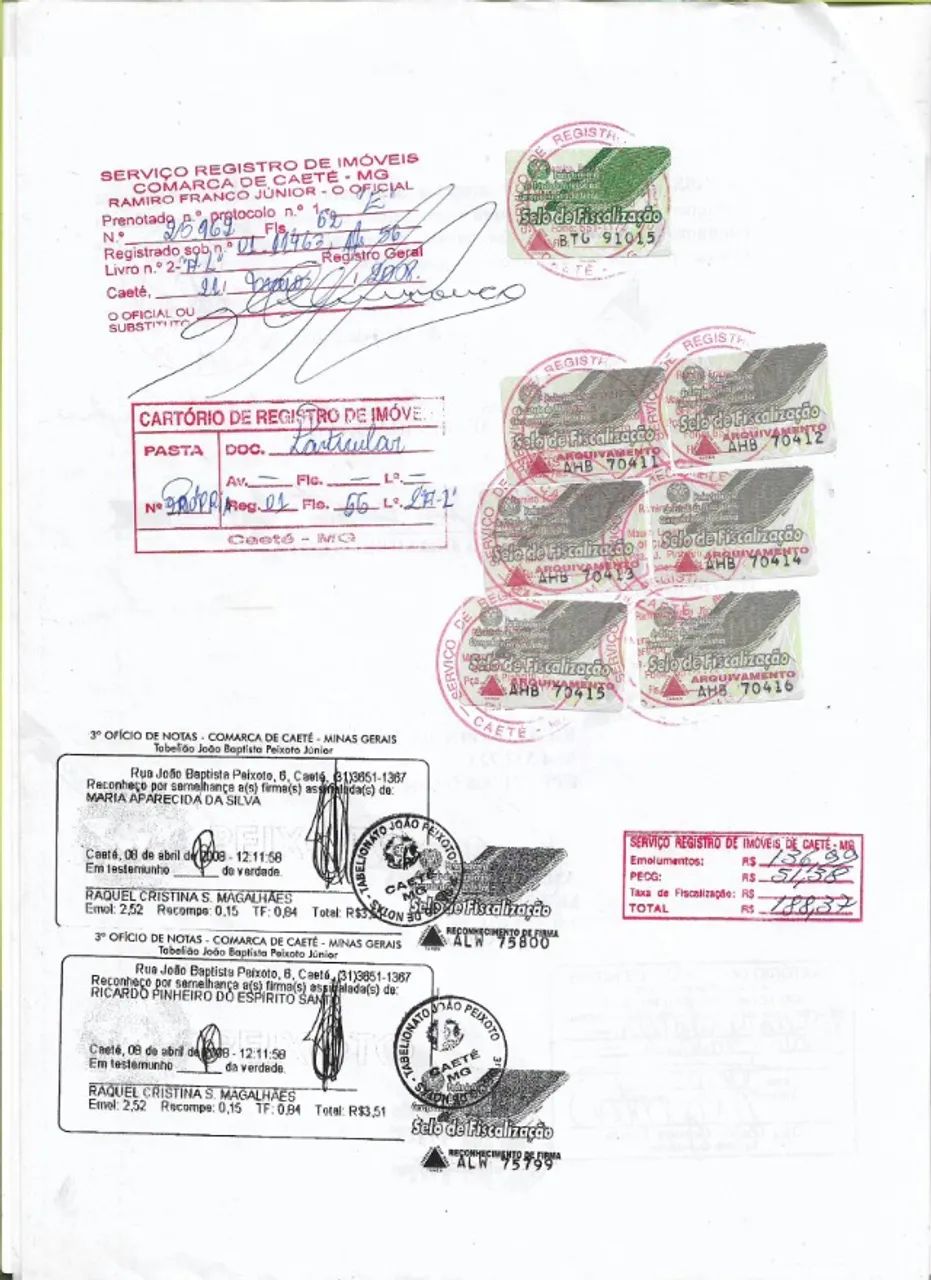 SERVIÇO REGISTRO DE IMÓVEIS
COMARCA DE CAETÉ - MG
RAMIRO FRANCO JÚNIOR - O OFICIAL
Prenotado n.º protocolo n.º 1 E
N.º 25962 Fls. 62
Registrado sob n.º 01 11463, fls 56
Livro n.º 2-"AL" Registro Geral
Caeté, 21 / maio / 2008.
O OFICIAL OU
SUBSTITUTO
SERVIÇO DE REGISTR
Selo de Fiscalização
BTG 91015
CAETÉ -
CARTÓRIO DE REGISTRO DE IMÓVE
PASTA DOC. Particular
Av. — Flc. — Lº. —
Nº Reg. 01 Flc. 56
Caeté - MG
REGISTR
Selo de Fiscalização
ARQUIVAMENTO
AHB 70411
REGISTR
Selo de Fiscalização
ARQUIVAMENTO
AHB 70412
Selo de Fiscalização
ARQUIVAMENTO
AHB 70413
Selo de Fiscalização
ARQUIVAMENTO
AHB 70414
SERVIÇO DE RE
Selo de Fiscalização
ARQUIVAMENTO
AHB 70415
CAETÉ -
Selo de Fiscalização
ARQUIVAMENTO
AHB 70416
3º OFÍCIO DE NOTAS - COMARCA DE CAETÉ - MINAS GERAIS
Tabelião João Baptista Peixoto Júnior
Rua João Baptista Peixoto, 6, Caeté, (31)3651-1367
Reconheço por semelhança a(s) firma(s) assinalada(s) de:
MARIA APARECIDA DA SILVA
Caeté, 08 de abril de 2008 - 12:11:58
Em testemunho ______ da verdade.
RAQUEL CRISTINA S. MAGALHÃES
Emol: 2,52 Recompe: 0,15 TF: 0,84 Total: R$3,51
TABELIONATO JOÃO PEIXOTO
CAETÉ
MG
Selo de Fiscalização
RECONHECIMENTO DE FIRMA
ALW 75800
SERVIÇO REGISTRO DE IMÓVEIS DE CAETÉ - MG
Emolumentos: R$ 136,99
PECG: R$ 51,38
Taxa de Fiscalização: R$
TOTAL R$ 188,37
3º OFÍCIO DE NOTAS - COMARCA DE CAETÉ - MINAS GERAIS
Tabelião João Baptista Peixoto Júnior
Rua João Baptista Peixoto, 6, Caeté, (31)3651-1367
Reconheço por semelhança a(s) firma(s) assinalada(s) de:
RICARDO PINHEIRO DO ESPÍRITO SANTO
Caeté, 08 de abril de 2008 - 12:11:58
Em testemunho ______ da verdade.
RAQUEL CRISTINA S. MAGALHÃES
Emol: 2,52 Recompe: 0,15 TF: 0,84 Total: R$3,51
TABELIONATO JOÃO PEIXOTO
3º OFÍCIO DE NOTAS
CAETÉ
MG
Selo de Fiscalização
RECONHECIMENTO DE FIRMA
ALW 75799